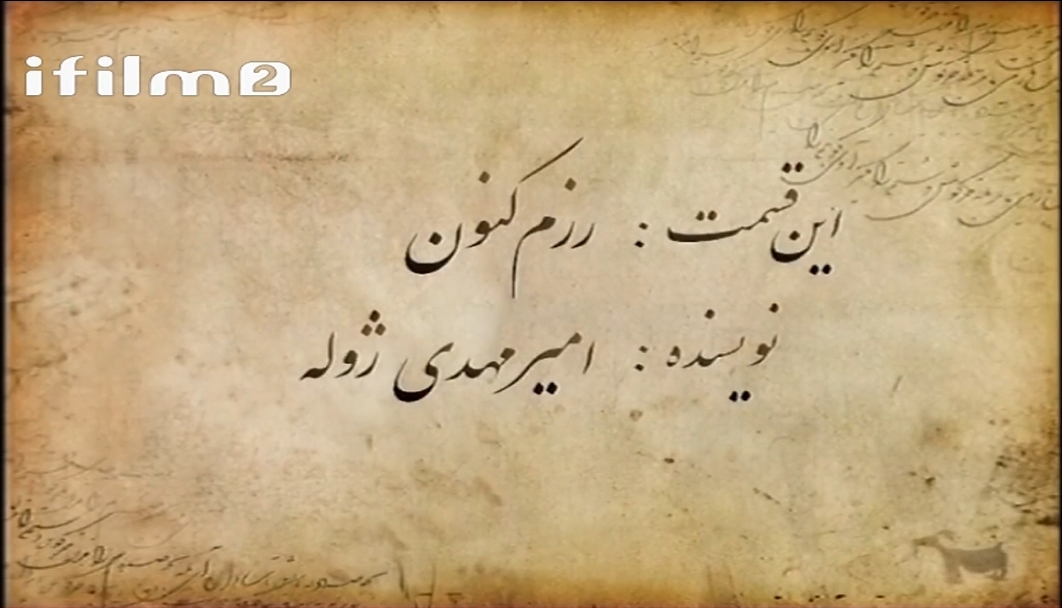 ifilm2
این قسمت : رزم کنون
نویسنده : امیرمهدی ژوله